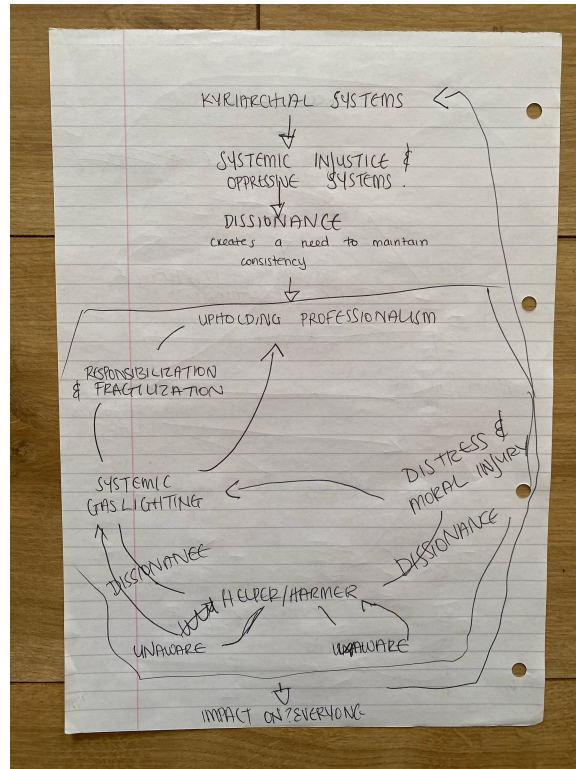 KYRIARCHIAL SYSTEMS
SYSTEMIC INJUSTICE &
OPPRESSIVE SYSTEMS.
DISSIONANCE
creates a need to maintain
consistency
UPHOLDING PROFESSIONALISM
RESPONSIBILIZATION
& FRAGILIZATION
DISTRESS &
MORAL INJURY
SYSTEMIC
GASLIGHTING
DISSIONANCE
DISSIONANCE
HELPER/HARMER
UNAWARE
AWARE
IMPACT ON?EVERYONE